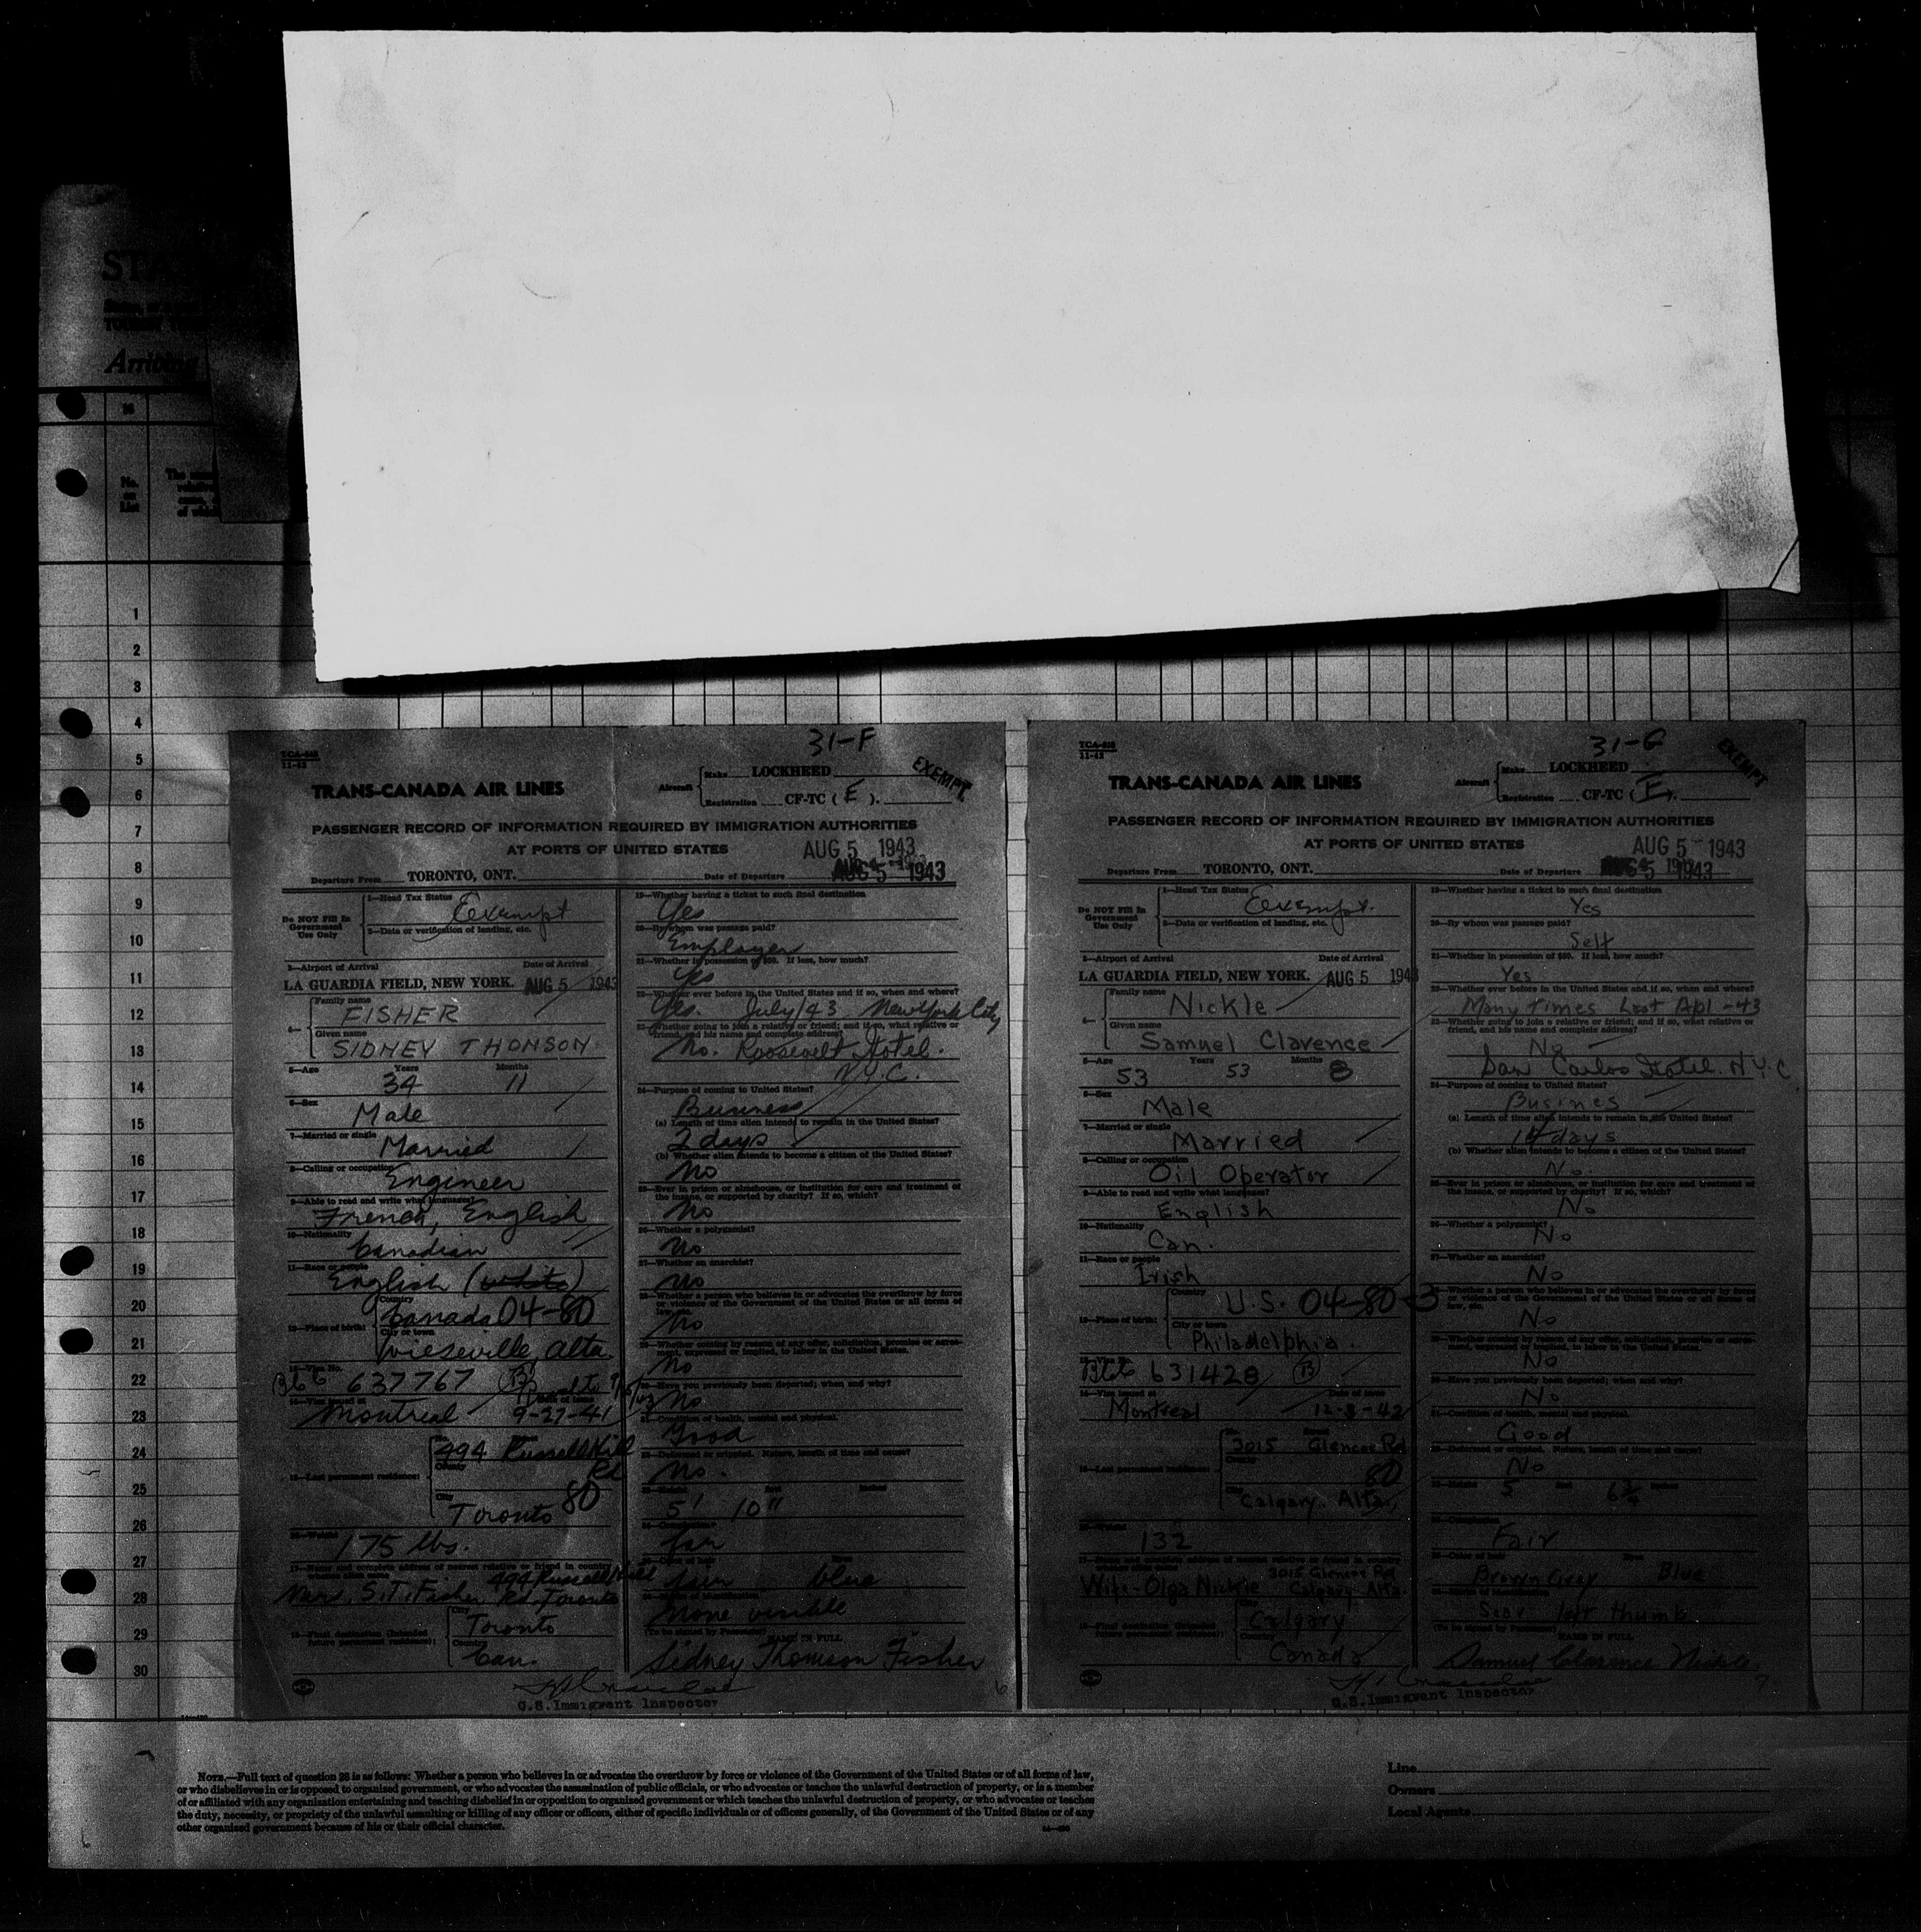 Arriving
No.
on
List
1
2
3
4
5
6
7
8
9
10
11
12
13
14
15
16
17
18
19
20
21
22
23
24
25
26
27
28
29
30
31-F
11-42
TRANS-CANADA AIR LINES
Aircraft Make LOCKHEED EXEMPT
Registration CF-TC ( E ).
PASSENGER RECORD OF INFORMATION REQUIRED BY IMMIGRATION AUTHORITIES
AT PORTS OF UNITED STATES AUG 5 1943
Departure From TORONTO, ONT. Date of Departure AUG 5 1943
Do NOT Fill In Government Use Only
1—Head Tax Status Exempt
2—Data or verification of landing, etc.
3—Airport of Arrival Date of Arrival
LA GUARDIA FIELD, NEW YORK. AUG 5 1943
4— Family name FISHER
Given name SIDNEY THOMSON
5—Age Years 34 Months 11
6—Sex Male
7—Married or single Married
8—Calling or occupation Engineer
9—Able to read and write what languages? French, English
10—Nationality Canadian
11—Race or people English (white)
12—Place of birth: Country Canada 04-80
City or town Wieseville, Alta
13—Visa No. 637767 (B)
14—Visa issued at Montreal 9-27-41
15—Last permanent residence: 494 Russell Hill Rd
City Toronto 80
16—Weight 175 lbs.
17—Name and complete address of nearest relative or friend in country
494 Russell Hill
Mrs. S.T. Fisher Rd. Toronto
18—Final destination (intended future permanent residence): City Toronto
Country Can.
19—Whether having a ticket to such final destination
Yes
20—By whom was passage paid?
Employer
21—Whether in possession of $50. If less, how much?
Yes
22—Whether ever before in the United States and if so, when and where?
Yes. July/43 New York City
23—Whether going to join a relative or friend; and if so, what relative or
friend, and his name and complete address?
No. Roosevelt Hotel.
N.Y.C.
24—Purpose of coming to United States?
Business
(a) Length of time alien intends to remain in the United States?
2 days
(b) Whether alien intends to become a citizen of the United States?
No
25—Ever in prison or almshouse, or institution for care and treatment of
the insane, or supported by charity? If so, which?
No
26—Whether a polygamist?
No
27—Whether an anarchist?
No
28—Whether a person who believes in or advocates the overthrow by force
or violence of the Government of the United States or all forms of
law, etc.
No
29—Whether coming by reason of any offer, solicitation, promise or agree-
ment, expressed or implied, to labor in the United States.
No
30—Have you previously been deported; when and why?
No
31—Condition of health, mental and physical.
Good
32—Deformed or crippled. Nature, length of time and cause?
No.
33—Height 5' 10"
34—Complexion
fair
35—Color of hair Eyes blue
None visible
(To be signed by Passenger) NAME IN FULL
Sidney Thomson Fisher
U.S. Immigrant Inspector
6
31-G
11-42
TRANS-CANADA AIR LINES
Aircraft Make LOCKHEED EXEMPT
Registration CF-TC ( E ).
PASSENGER RECORD OF INFORMATION REQUIRED BY IMMIGRATION AUTHORITIES
AT PORTS OF UNITED STATES AUG 5 1943
Departure From TORONTO, ONT. Date of Departure AUG 5 1943
Do NOT Fill In Government Use Only
1—Head Tax Status Exempt.
2—Data or verification of landing, etc.
3—Airport of Arrival Date of Arrival
LA GUARDIA FIELD, NEW YORK. AUG 5 1943
4— Family name Nickle
Given name Samuel Clarence
5—Age 53 Years 53 Months 8
6—Sex Male
7—Married or single Married
8—Calling or occupation Oil Operator
9—Able to read and write what languages? English
10—Nationality Can.
11—Race or people Irish
12—Place of birth: Country U.S. 04-80-3
City or town Philadelphia.
13—Visa No. 631428 (B)
14—Visa issued at Montreal Date of Issue 12-8-42
15—Last permanent residence: 3015 Glencoe Rd
80
City Calgary, Alta,
16—Weight 132
17—Name and complete address of nearest relative or friend in country
3015 Glencoe Rd
Wife-Olga Nickle Calgary Alta.
18—Final destination (intended future permanent residence): City Calgary
Country Canada
19—Whether having a ticket to such final destination
Yes
20—By whom was passage paid?
Self
21—Whether in possession of $50. If less, how much?
Yes
22—Whether ever before in the United States and if so, when and where?
Many times Last Apl-43
23—Whether going to join a relative or friend; and if so, what relative or
friend, and his name and complete address?
No
San Carlos Hotel. N.Y.C.
24—Purpose of coming to United States?
Busines
(a) Length of time alien intends to remain in the United States?
14 days
(b) Whether alien intends to become a citizen of the United States?
No.
25—Ever in prison or almshouse, or institution for care and treatment of
the insane, or supported by charity? If so, which?
No
26—Whether a polygamist?
No
27—Whether an anarchist?
No
28—Whether a person who believes in or advocates the overthrow by force
or violence of the Government of the United States or all forms of
law, etc.
No
29—Whether coming by reason of any offer, solicitation, promise or agree-
ment, expressed or implied, to labor in the United States.
No
30—Have you previously been deported; when and why?
No
31—Condition of health, mental and physical.
Good
32—Deformed or crippled. Nature, length of time and cause?
No
33—Height 5 6 3/4
34—Complexion
Fair
35—Color of hair Brown Grey Eyes Blue
Scar left thumb
(To be signed by Passenger) NAME IN FULL
Samuel Clarence Nickle.
U.S. Immigrant Inspector
7
NOTE.—Full text of question 28 is as follows: Whether a person who believes in or advocates the overthrow by force or violence of the Government of the United States or of all forms of law,
or who disbelieves in or is opposed to organized government, or who advocates the assassination of public officials, or who advocates or teaches the unlawful destruction of property, or is a member
of or affiliated with any organization entertaining and teaching disbelief in or opposition to organized government or which teaches the unlawful destruction of property, or who advocates or teaches
the duty, necessity, or propriety of the unlawful assaulting or killing of any officer or officers, either of specific individuals or of officers generally, of the Government of the United States or of any
other organized government because of his or their official character.
Line
Owners
Local Agents